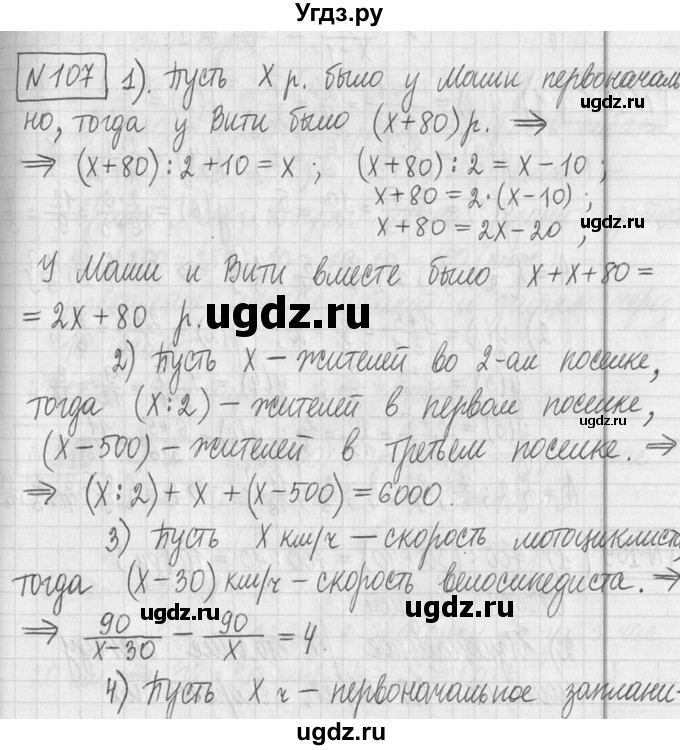 Угдз.ру
№107 1). Пусть X р. было у Маши первоначаль
ugdz.ru
но, тогда у Вити было (X+80) р. ⇒
⇒ (X+80) : 2 + 10 = X ; (X+80) : 2 = X – 10 ;
X+80 = 2·(X–10) ;
ugdz.ru
X+80 = 2X–20 ;
У Маши и Вити вместе было X+X+80 =
= 2X+80 р.
ugdz.ru
2) Пусть X – жителей во 2-ом поселке,
тогда (X:2) – жителей в первом поселке,
ugdz.ru
(X–500) – жителей в третьем поселке. ⇒
⇒ (X:2) + X + (X–500) = 6000.
3) Пусть X км/ч – скорость мотоциклиста,
тогда (X–30) км/ч – скорость велосипедиста. ⇒
ugdz.ru ugdz.ru
⇒ 90/X–30 – 90/X = 4.
4) Пусть X ч – первоначальное заплани-
ugdz.ru
ugdz.ru